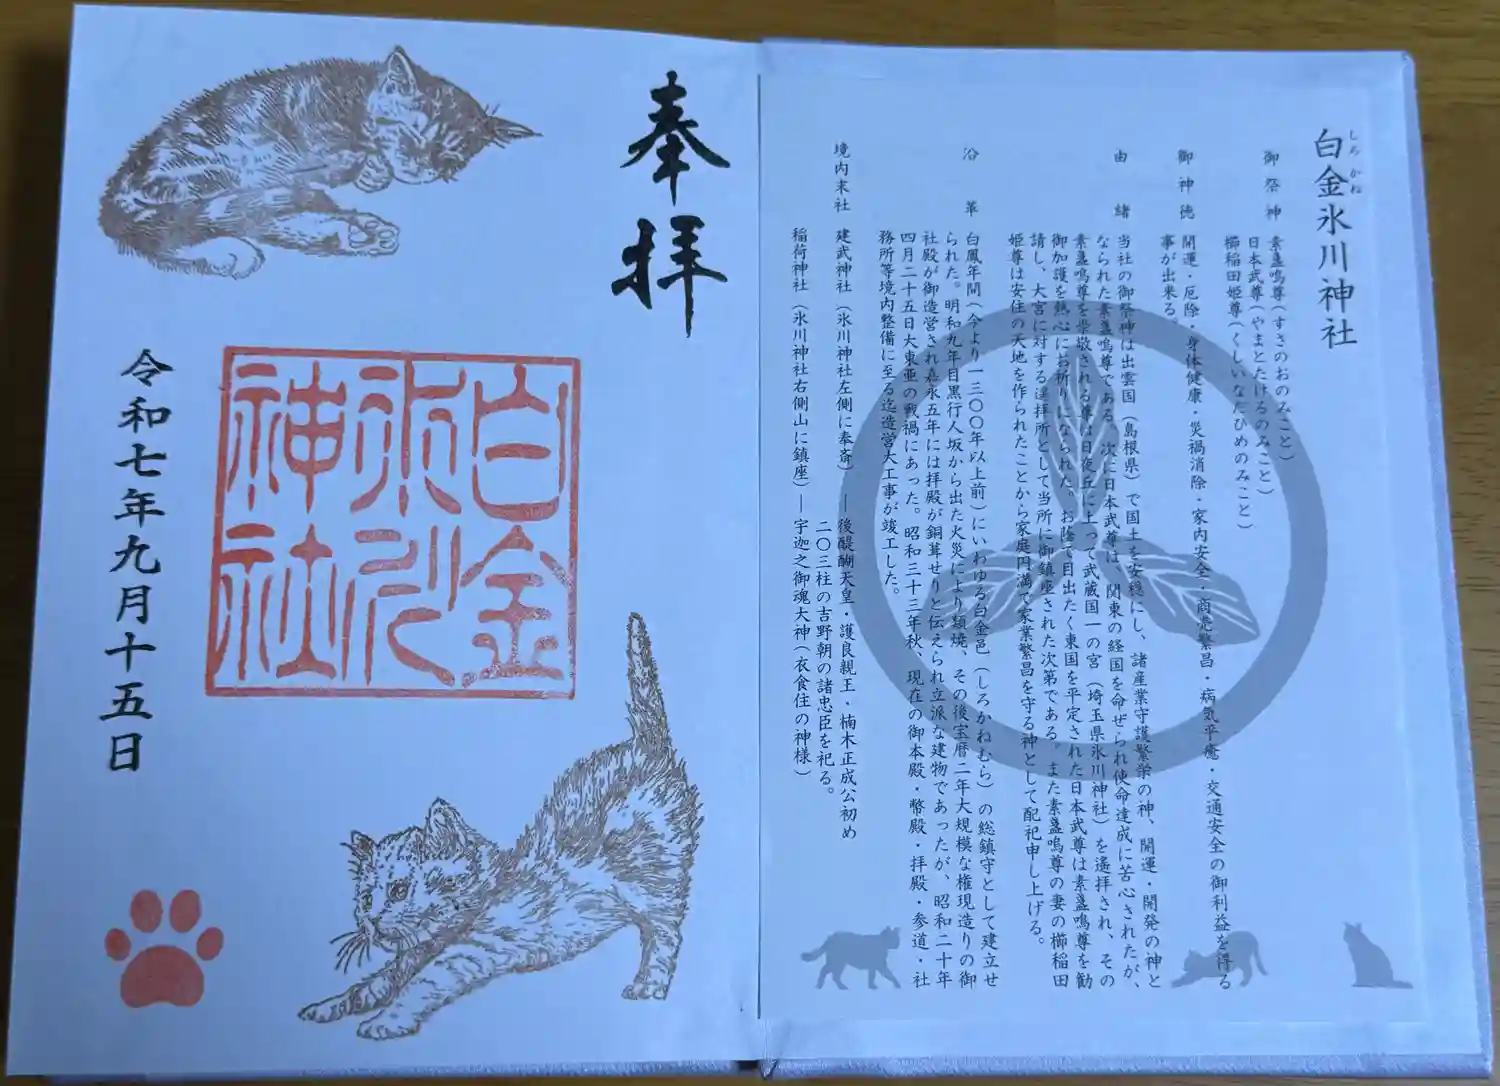 白金氷川神社
しろかね
御祭神 素盞嗚尊(すさのおのみこと)
日本武尊(やまとたけるのみこと)
櫛稲田姫尊(くしいなだひめのみこと)
御神徳 開運・厄除・身体健康・災禍消除・家内安全・商売繁昌・病気平癒・交通安全の御利益を得る
事が出来る。
由緒 当社の御祭神は出雲国(島根県)で国土を安穏にし、諸産業守護繁栄の神、開運・開発の神と
なられた素盞嗚尊である。次に日本武尊は、関東の経国を命ぜられ使命達成に苦心されたが、
素盞嗚尊を崇敬される尊は日夜丘に上って武蔵国一の宮(埼玉県氷川神社)を遙拝され、その
御加護を熱心にお祈りになられた。お陰で目出たく東国を平定された日本武尊は素盞嗚尊を勧
請し、大宮に対する遥拝所として当所に御鎮座された次第である。また素盞嗚尊の妻の櫛稲田
姫尊は安住の天地を作られたことから家庭円満で家業繁昌を守る神として配祀申し上げる。
沿革 白鳳年間(今より一三〇〇年以上前)にいわゆる白金邑(しろかねむら)の総鎮守として建立せ
られた。明和九年目黒行人坂から出た火災により類焼、その後宝暦二年大規模な権現造りの御
社殿が御造営され嘉永五年には拝殿が銅葺せりと伝えられ立派な建物であったが、昭和二十年
四月二十五日大東亜の戦禍にあった。昭和三十三年秋、現在の御本殿・幣殿・拝殿・参道・社
務所等境内整備に至る迄造営大工事が竣工した。
境内末社 建武神社(氷川神社左側に奉斎)―後醍醐天皇・護良親王・楠木正成公初め
二〇三柱の吉野朝の諸忠臣を祀る。
稲荷神社(氷川神社右側山に鎮座)―宇迦之御魂大神(衣食住の神様)
奉拝
白金
氷川
神社
令和七年九月十五日